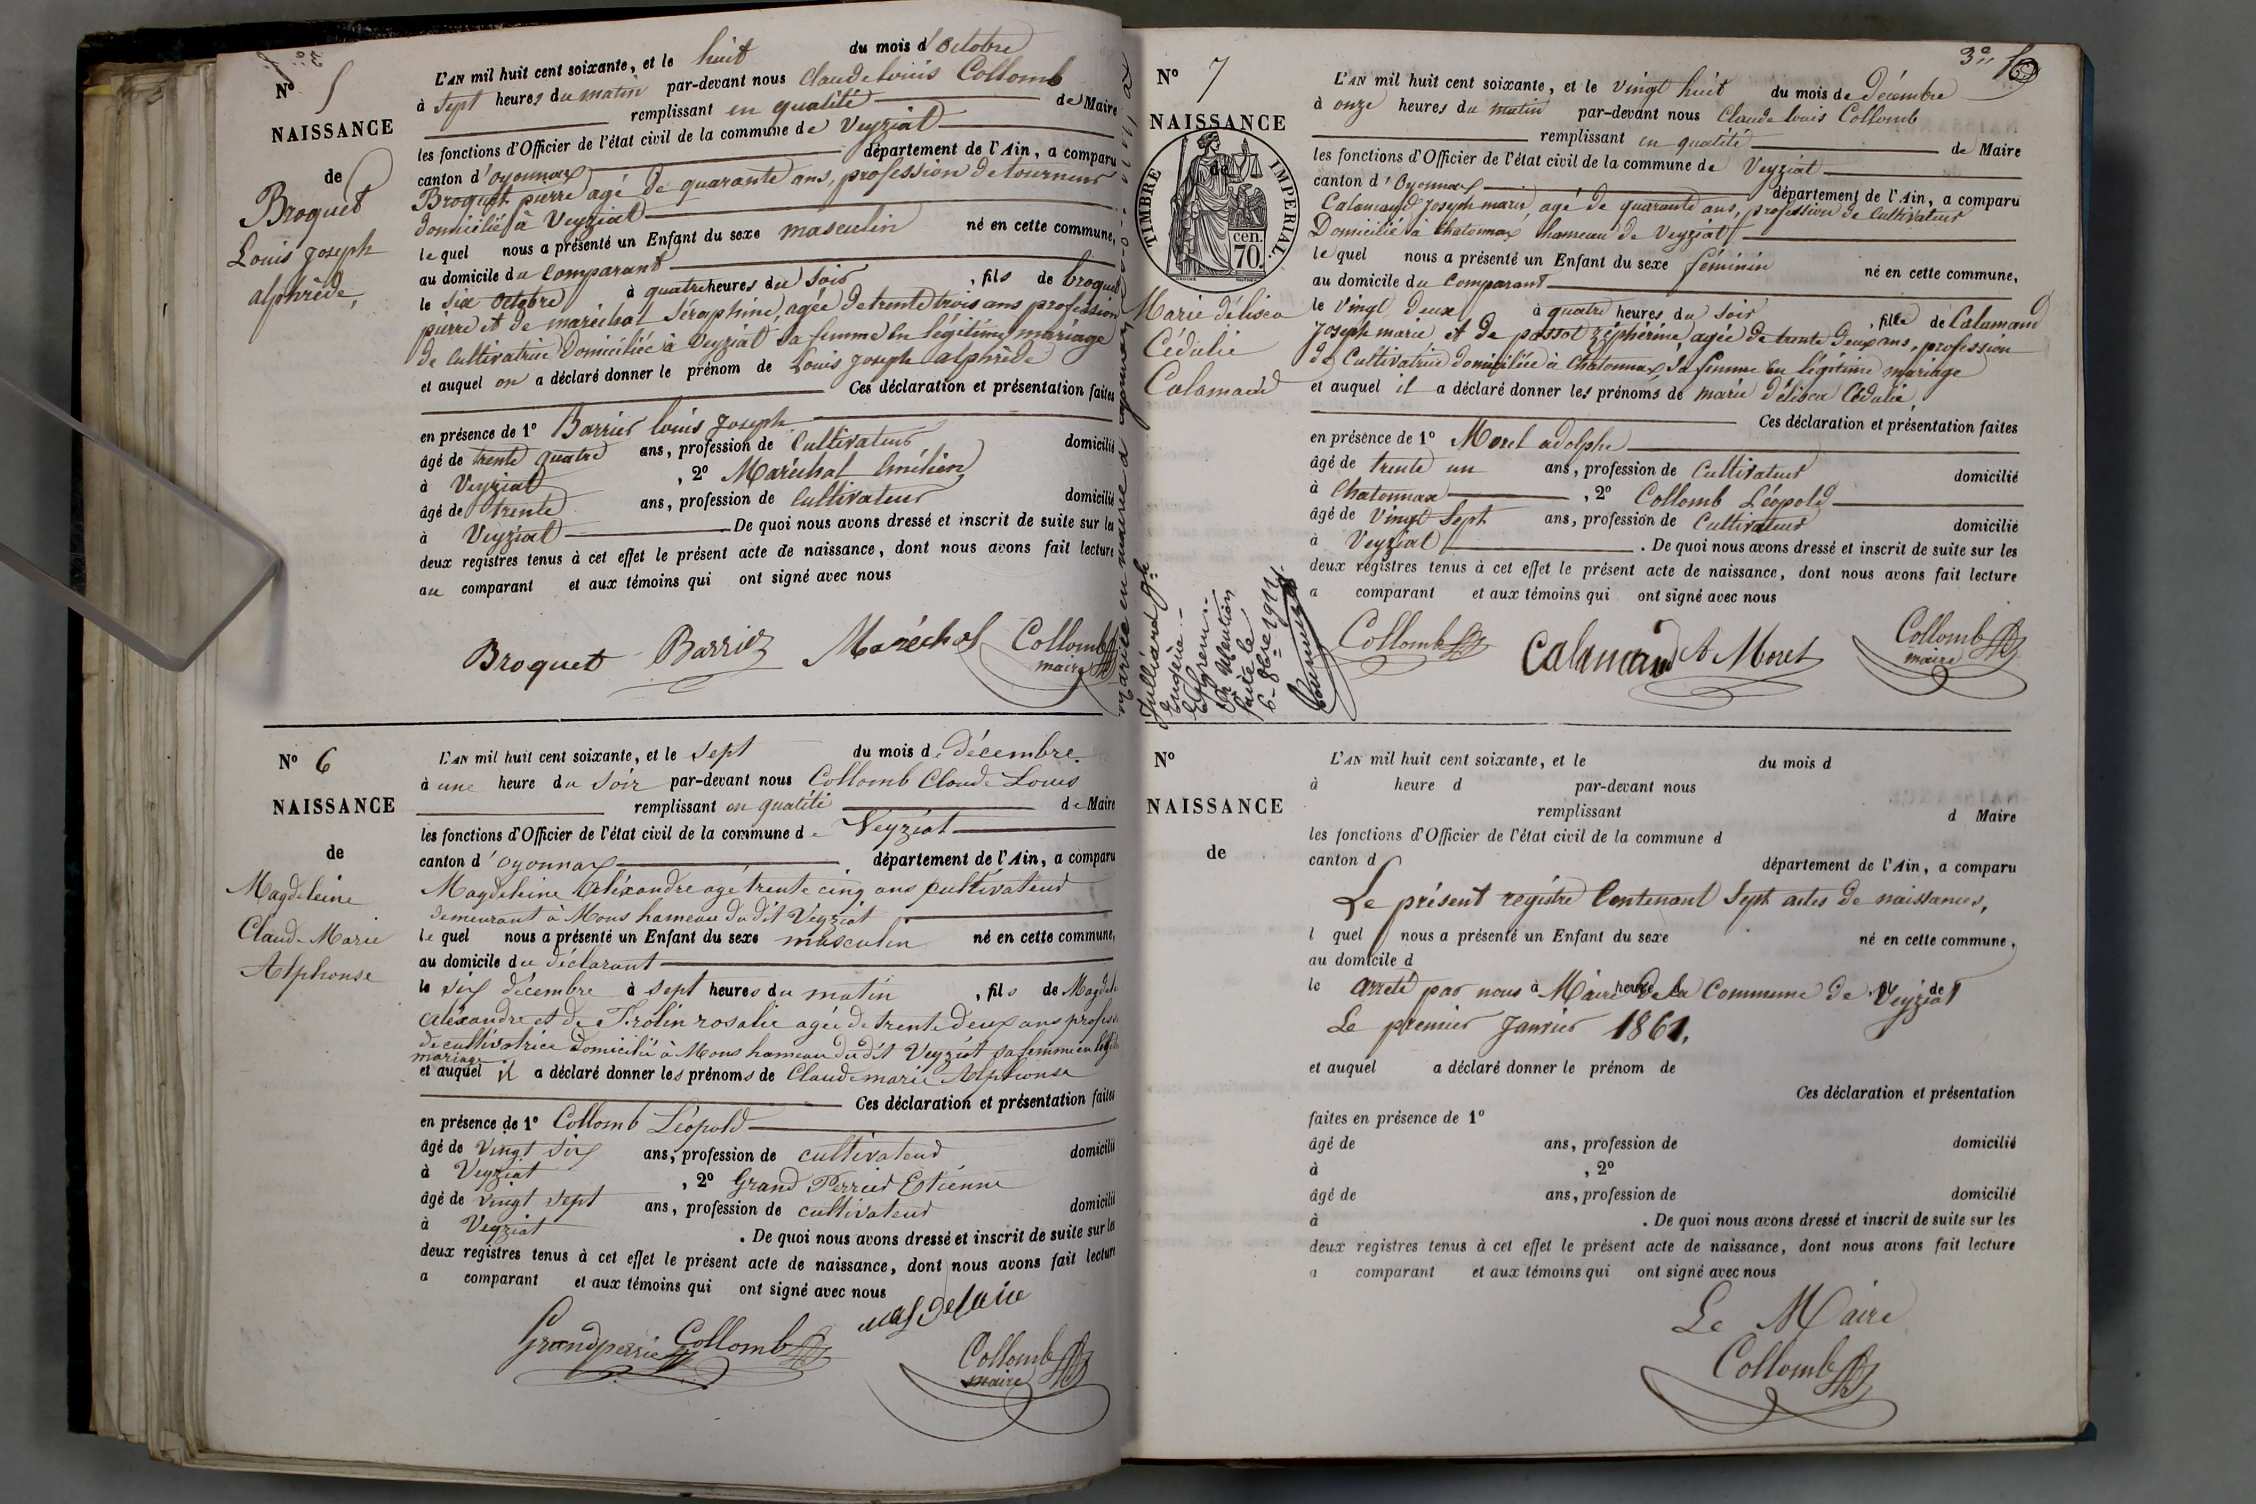 N° 5
NAISSANCE
de
Broquet
Louis joseph
alphrède,
L'AN mil huit cent soixante, et le huit du mois d'Octobre
à sept heures du matin par-devant nous Claude louis Collomb
remplissant en qualité de Maire
les fonctions d'Officier de l'état civil de la commune de Veyziat
canton d'Oyonnax département de l'Ain, a comparu
Broquet pierre agé de quarante ans, profession de tourneur
domicilié à Veyziat
lequel nous a présenté un Enfant du sexe masculin né en cette commune,
au domicile du Comparant
le six octobre à quatre heures du soir, fils de broquet
pierre et de maréchal Séraphine, agée de trente trois ans profession
de Cultivatrice Domiciliée à Veyziat sa femme En légitime mariage
et auquel on a déclaré donner le prénom de Louis Joseph alphrède
Ces déclaration et présentation faites
en présence de 1° Barrier louis Joseph
âgé de trente quatre ans, profession de Cultivateur domicilié
à Veyziat, 2° Maréchal Emélien
âgé de trente ans, profession de Cultivateur domicilié
à Veyziat De quoi nous avons dressé et inscrit de suite sur les
deux registres tenus à cet effet le présent acte de naissance, dont nous avons fait lecture
au comparant et aux témoins qui ont signé avec nous
Broquet Barrier Maréchal Collomb
maire
N° 6
NAISSANCE
de
Magdeleine
Claude Marie
Alphonse
L'AN mil huit cent soixante, et le sept du mois d. décembre.
à une heure du soir par-devant nous Collomb Claude Louis
remplissant en qualité de Maire
les fonctions d'Officier de l'état civil de la commune de Veyziat
canton d'Oyonnax département de l'Ain, a comparu
Magdeleine Aléxandre agé trente cinq ans cultivateur
demeurant à Mons hameau du dit Veyziat
lequel nous a présenté un Enfant du sexe masculin né en cette commune,
au domicile du déclarant
le six décembre à sept heures du matin, fils de Magdel
Aléxandre et de rosalie agée de trente deux ans profess
de cultivatrice domicilié à Mons hameau du dit Veyziat sa femme en légit
mariage
et auquel il a déclaré donner les prénoms de Claude marie Alphonse
Ces déclaration et présentation faites
en présence de 1° Collomb Léopold
âgé de vingt six ans, profession de cultivateur domicilié
à Veyziat, 2° Grand Perrier Etiénne
âgé de vingt sept ans, profession de cultivateur domicilié
à Veyziat. De quoi nous avons dressé et inscrit de suite sur les
deux registres tenus à cet effet le présent acte de naissance, dont nous avons fait lecture
a comparant et aux témoins qui ont signé avec nous
Grandperrie Collomb
Collomb
maire
3e 10
N° 7
NAISSANCE
de
TIMBRE IMPERIAL.
cen.
70.
Marie délisca
Cédulie
Calamand
Juilliard
Eugène
Mention
faite le
6 8bre 1914.
L'AN mil huit cent soixante, et le vingt huit du mois de décembre
à onze heures du matin par-devant nous Claude louis Collomb
remplissant en qualité de Maire
les fonctions d'Officier de l'état civil de la commune de Veyziat
canton d'Oyonnax département de l'Ain, a comparu
Calamand Joseph marie, agé de quarante ans, profession de Cultivateur
Domicilié à Chatonnax hameau de Veyziat
lequel nous a présenté un Enfant du sexe féminin né en cette commune,
au domicile du Comparant
le vingt deux à quatre heures du soir, fille de Calamand
Joseph marie et de possot Zéphérine agée de trente deux ans, profession
de Cultivatrice domiciliée à Chatonnax sa femme En légitime mariage
et auquel il a déclaré donner les prénoms de marie délisca Cédulie
Ces déclaration et présentation faites
en présence de 1° Morel adolphe
âgé de trente un ans, profession de Cultivateur domicilié
à Chatonnax, 2° Collomb Léopold
âgé de vingt sept ans, profession de Cultivateur domicilié
à Veyziat. De quoi nous avons dressé et inscrit de suite sur les
deux registres tenus à cet effet le présent acte de naissance, dont nous avons fait lecture
a comparant et aux témoins qui ont signé avec nous
Collomb Calamand A Morel Collomb
maire
N°
NAISSANCE
de
L'AN mil huit cent soixante, et le du mois d
à heure d par-devant nous
remplissant d Maire
les fonctions d'Officier de l'état civil de la commune d
canton d département de l'Ain, a comparu
Le présent régistre Contenant Sept actes de naissances,
l quel nous a présenté un Enfant du sexe né en cette commune,
au domicile d
le à heure d , de
arreté par nous Maire de la Commune de Veyziat
Le premier Janvier 1861.
et auquel a déclaré donner le prénom de
Ces déclaration et présentation
faites en présence de 1°
âgé de ans, profession de domicilié
à , 2°
âgé de ans, profession de domicilié
à . De quoi nous avons dressé et inscrit de suite sur les
deux registres tenus à cet effet le présent acte de naissance, dont nous avons fait lecture
a comparant et aux témoins qui ont signé avec nous
Le Maire
Collomb